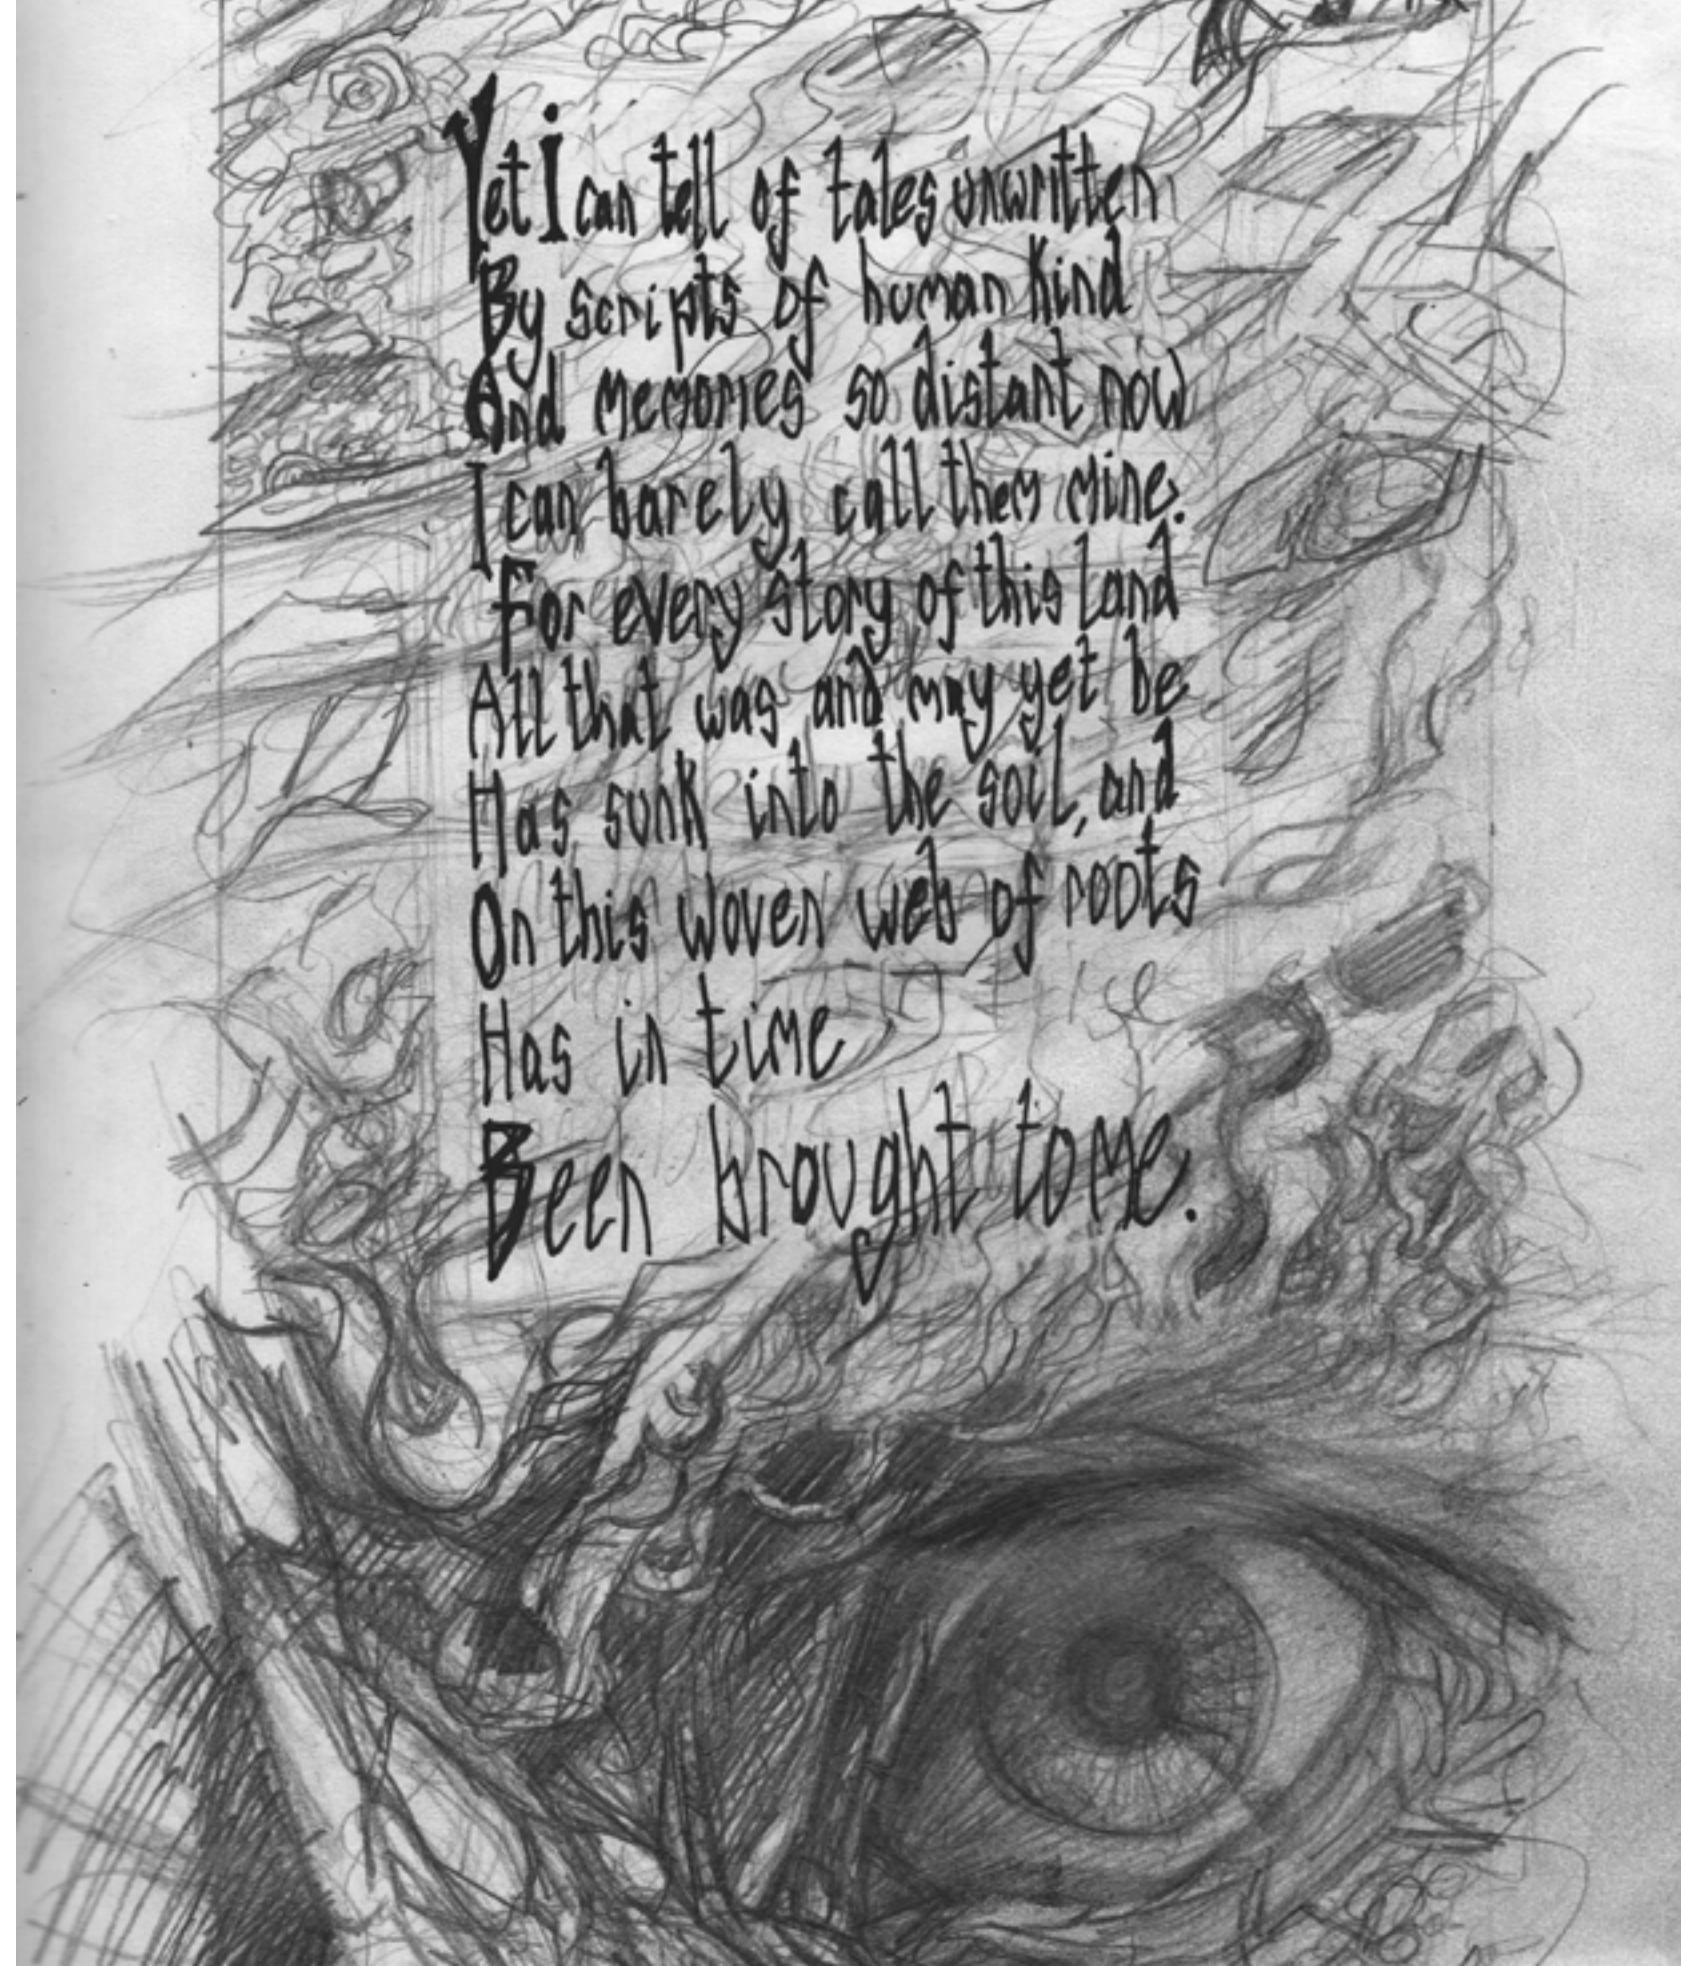 Yet I can tell of tales unwritten
By scripts of human kind
And memories so distant now
I can barely call them mine.
For every story of this land
All that was and may yet be
Has sunk into the soil, and
On this woven web of roots
Has in time
Been brought to me.